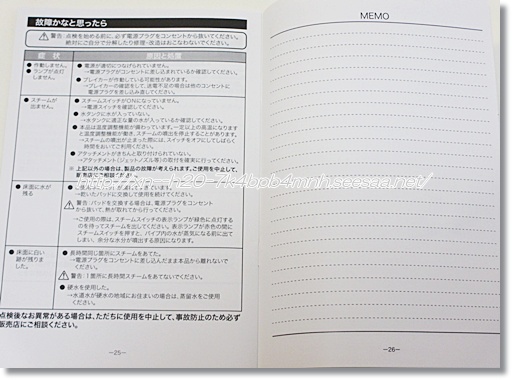 故障かなと思ったら
警告：点検を始める前に、必ず電源プラグをコンセントから抜いてください。
絶対にご自分で分解したり修理・改造はおこなわないでください。
症 状
原因と処理
● 作動しません。
● ランプが点灯
しません。
● 電源が適切につなげられていません。
→電源プラグがコンセントに差し込まれているか確認してください。
● ブレイカーが作動している可能性があります。
→ブレイカーの確認をして、送電不足の場合は他のコンセントに
電源プラグを差し込み直してください。
● スチームが
出ません。
● スチームスイッチがONになっていません。
→電源スイッチを確認してください。
● 水タンクに水が入っていません。
→水タンクに適正な量の水が入っているか確認してください。
● 本品は温度調整機能が備わっています。一定以上の高温になります
と温度調整機能が働き、スチームの噴出を停止することがあります。
→スチームの噴出が止まった際には、スイッチをオフにしてしばらく
時間をおいてご利用ください。
● アタッチメントがきちんと取り付けられていない。
→アタッチメント(ジェットノズル等)の取付を確実に行ってください。
※ 上記以外の場合は、製品の故障が考えられます。ご使用を中止して、
販売店にご相談ください。
● 床面に水が
残る
→乾いたパッドに交換して使用を続けてください。
警告：パッドを交換する場合は、電源プラグをコンセント
から抜いて、熱が取れてから行ってください。
→ご使用の際は、スチームスイッチの表示ランプが緑色に点灯する
のを待ってスチームを出してください。表示ランプが赤色の間に
スチームスイッチを押すと、パイプ内の水が蒸気になる前に出て
しまい、余分な水分が噴出する原因になります。
● 床面に白い
跡が残りま
した。
● 長時間同じ箇所にスチームをあてた。
→電源プラグをコンセントに差し込んだまま本品から離れないで
ください。
警告：1箇所に長時間スチームをあてないでください。
● 硬水を使用した。
→水道水が硬水の地域にお住まいの場合は、蒸留水をご使用
ください。
点検後なお異常がある場合は、ただちに使用を中止して、事故防止のため必ず
販売店にご相談ください。
−25−
MEMO
−26−